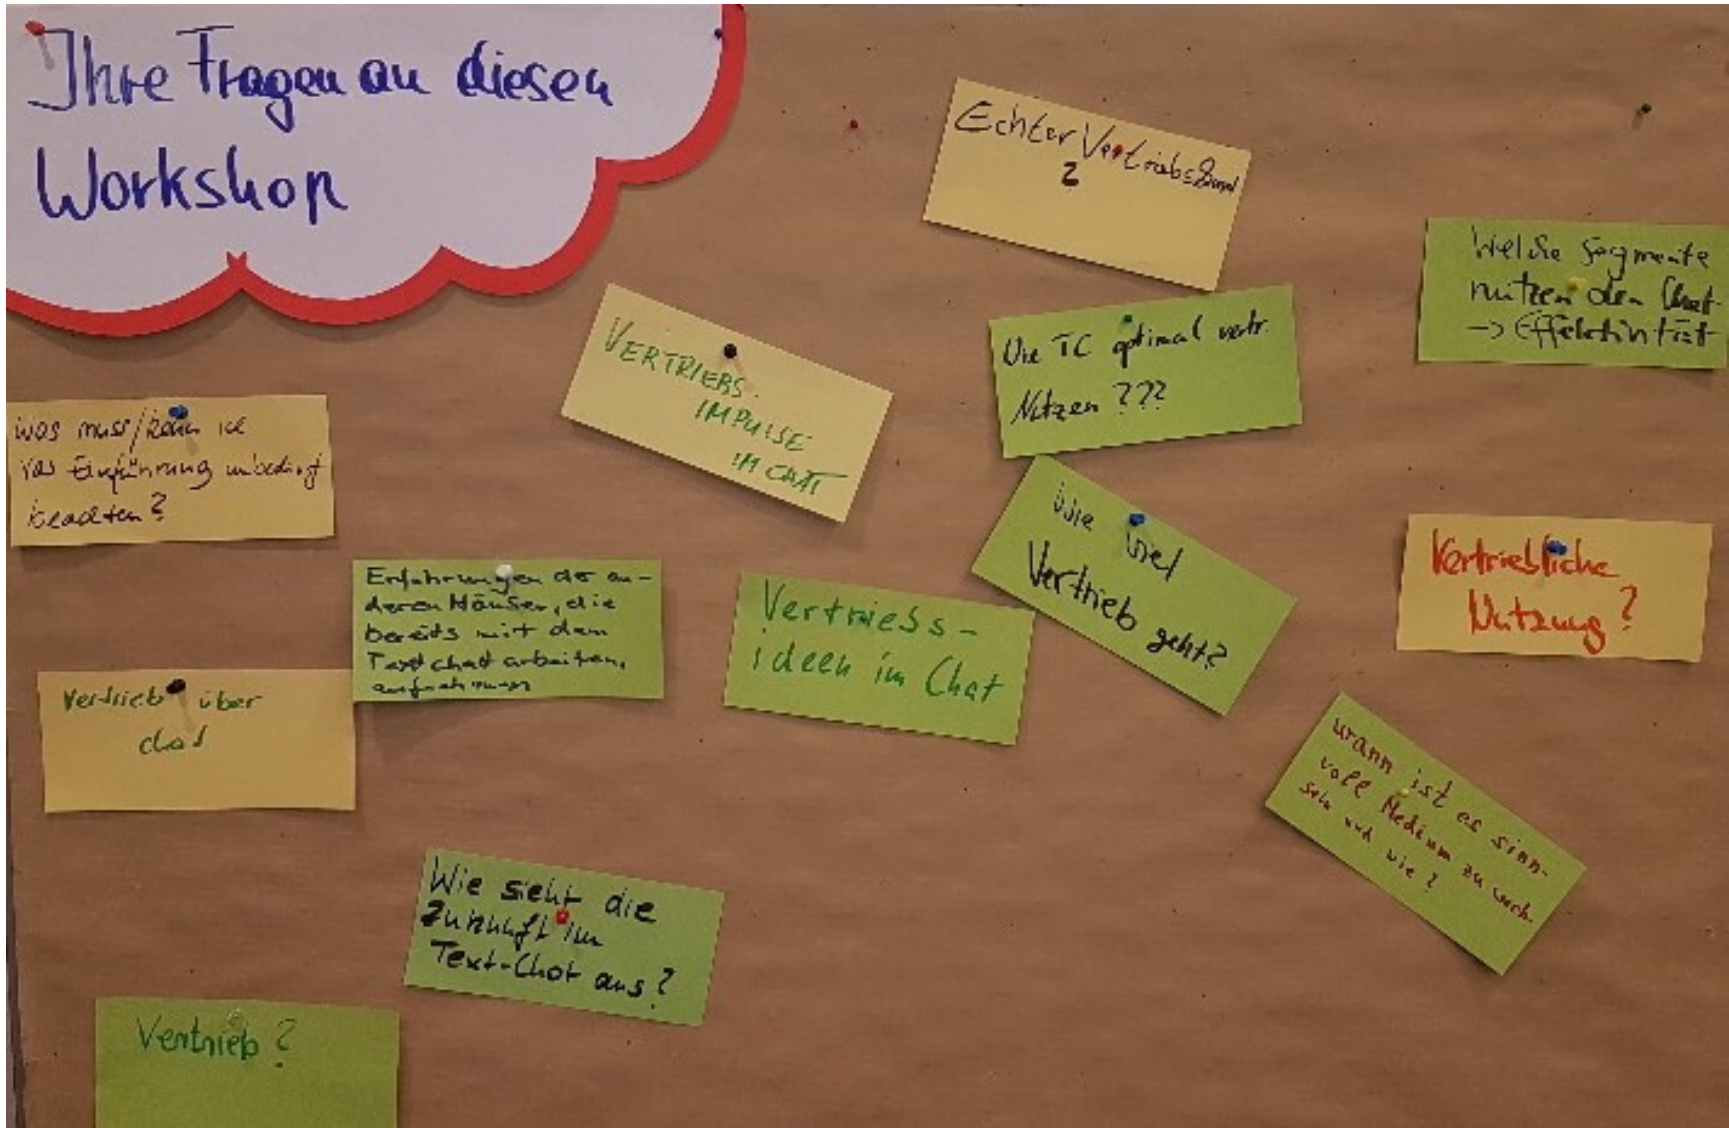 Ihre Fragen an diesen
Workshop
Echter Vertriebskanal
?
Welche Segmente
nutzen den Chat
-> Effektivität
VERTRIEBS.
IMPULSE
IM CHAT
Wie TC optimal vertr.
Nutzen ???
Was muss/kann ich
vor Einführung unbedingt
beachten?
Wie viel
Vertrieb geht?
Vertriebliche
Nutzung?
Erfahrungen der an-
deren Häuser, die
bereits mit dem
Textchat arbeiten,
aufnehmen
Vertriebs-
ideen im Chat
Vertrieb über
chat
wann ist es sinn-
voll Medium zu wech-
seln und wie?
Wie sieht die
Zukunft im
Text-Chat aus?
Vertrieb?